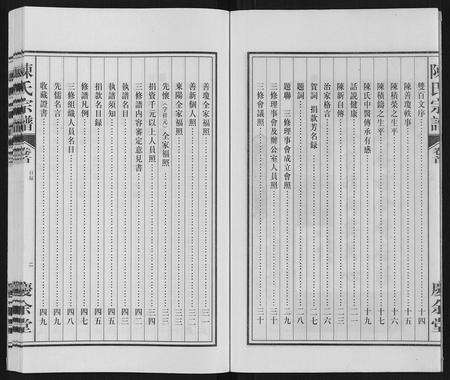 陳氏宗譜
卷首
慶余堂
雙百文序 十四
陳善瓊軼事 十五
陳積榮之生平 十六
陳積鑄之生平 十七
陳氏中醫傳承有感 十九
話説健康 二一
陳新自傳
治家格言
賀詞 捐款芳名錄 二七
題詞 二八
題聯 三修理事會成立會照 二九
三修理事會及辦公室人員照 三十
三修會議照 三十
善瓊全家福照 三一
善新個人照 三二
東陽全家福照 三三
捐資千元以上人員照 三四
先懷 全家福照 三五
三修譜内容審定意見書
執譜名目 四三
執譜須知 四四
捐款名目録 四五
修譜凡例 四七
三修組織人員名目 四八
先儒名言 四九
收藏證書 四九
陳氏宗譜
卷首
目録
二
慶余堂